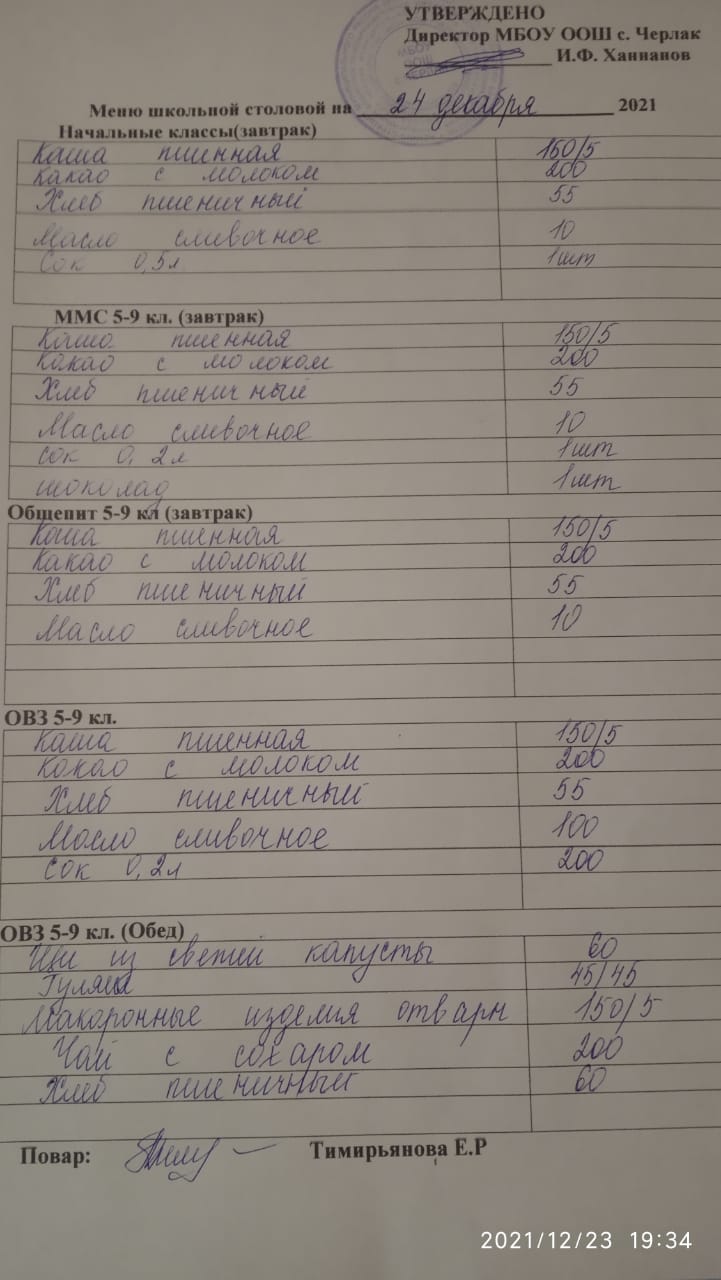 УТВЕРЖДЕНО
Директор МБОУ ООШ с. Черлак
И.Ф. Ханнанов
МБОУ
ООШ
ЧЕРЛАК
Меню школьной столовой на 24 декабря 2021
Начальные классы(завтрак)
Каша пшенная 150/5
Какао с молоком 200
Хлеб пшеничный 55
Масло сливочное 10
Сок 0,5л 1шт
ММС 5-9 кл. (завтрак)
Каша пшенная 150/5
Какао с молоком 200
Хлеб пшеничный 55
Масло сливочное 10
Сок 0,2л 1шт
шоколад 1шт
Общепит 5-9 кл (завтрак)
Каша пшенная 150/5
Какао с молоком 200
Хлеб пшеничный 55
Масло сливочное 10
ОВЗ 5-9 кл.
Каша пшенная 150/5
Кокао с молоком 200
Хлеб пшеничный 55
Масло сливочное 100
Сок 0,2л 200
ОВЗ 5-9 кл. (Обед)
Щи из свежей капусты 60
Гуляш 45/45
Макоронные изделия отварн 150/5
Чай с сохаром 200
Хлеб пшеничный 60
Повар: Тимирьянова Е.Р
2021/12/23 19:34